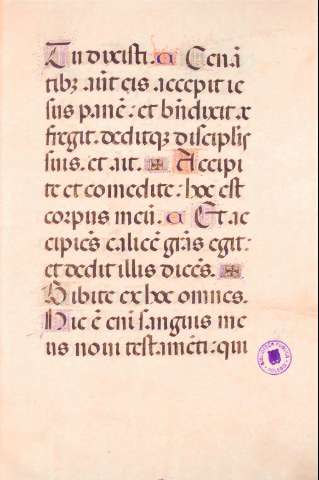 Tu dixisti. C Cenā
tibꝫ .aūt eis accepit ie
sus panē: et bn̄dixit .⁊
fregit. deditqꝫ discipl̄is
suis. et ait. ✠ Accipi
te et comedite: hoc est
corpus meū. C Et ac
cipiēs calicē gr̄as egit:
et dedit illis dicēs. ✠
Bibite ex hoc omnes.
Hic ē eni᷒ sanguis me
us noui testamēti: qui
BIBLIOTECA PUBLICA
TOLEDO